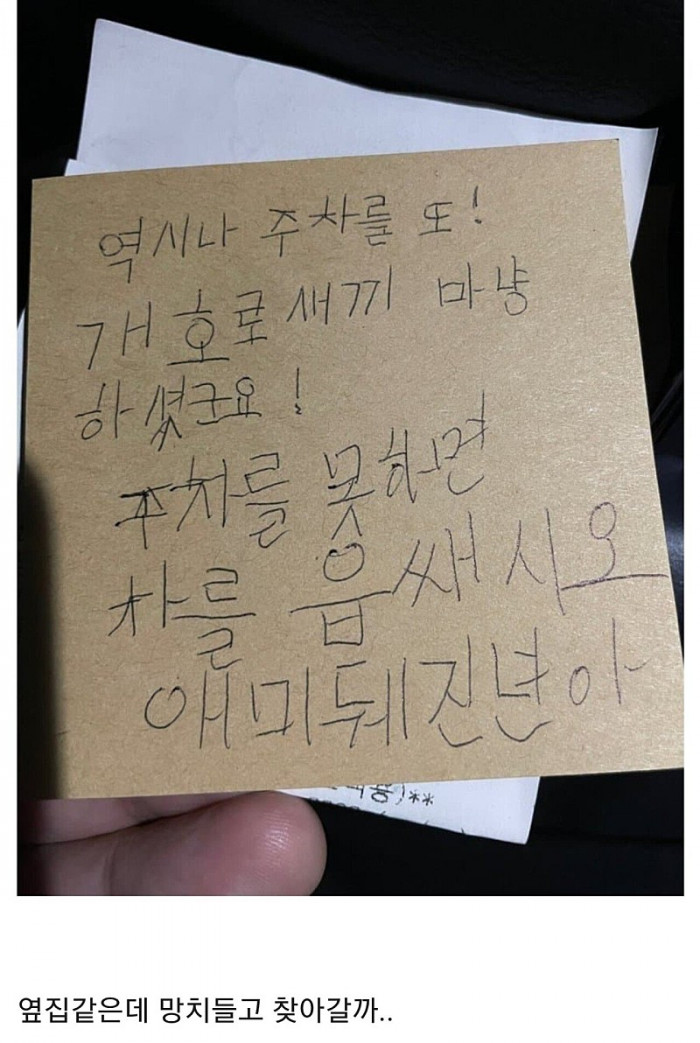 역시나 주차를 또!
개호로새끼 마냥
하셨군요!
주차를 못하면
차를 웁쌔시오
애미뒈진년아
옆집같은데 망치들고 찾아갈까..